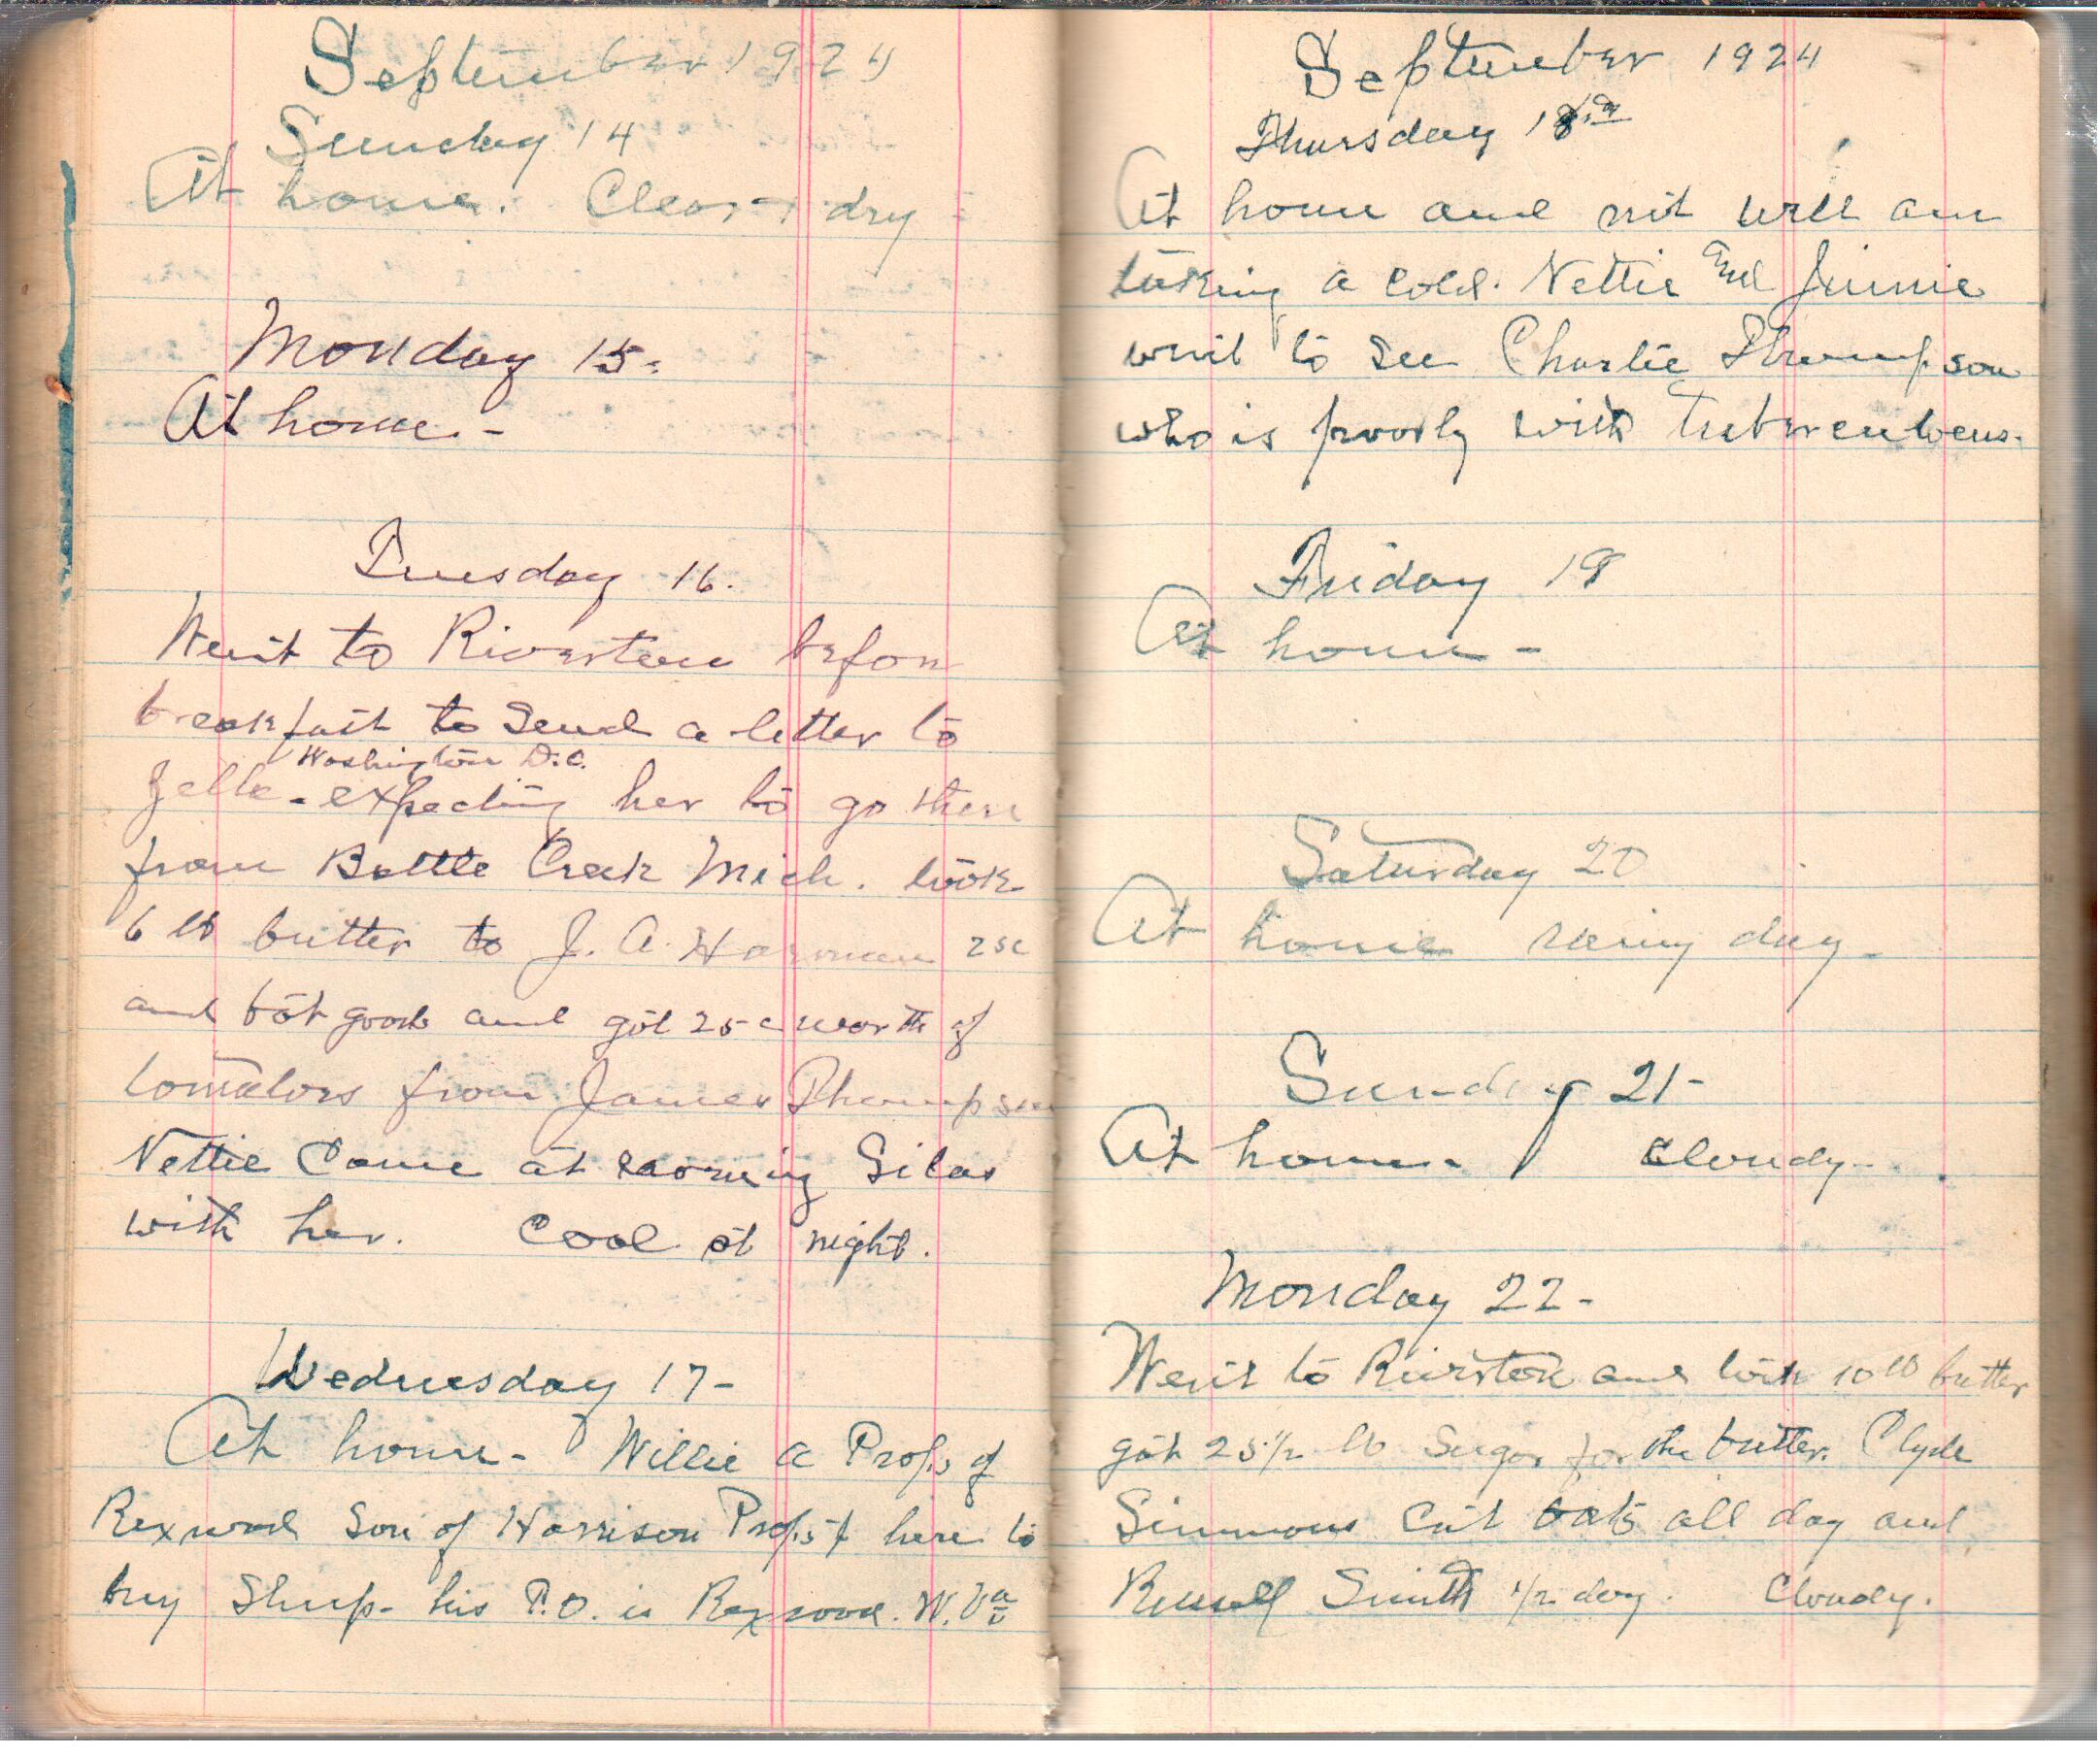 September 1924
Sunday 14
At home. Clear + dry -
Monday 15.
At home. -
Tuesday 16.
Went to Riverton before
breakfast to send a letter to
Washington D.C.
Zella - expecting her to go there
from Battle Creek Mich. took
6 lb butter to J. A. Harman 25c
and bot goods and got 25 c worth of
tomatoes from James Thompson
Nettie Came at evening Silas
with her. Cool at night.
Wednesday 17 -
At home - Willie a Props of
Rexrood Son of Harrison Propst here to
buy Sheep - his P.O. is Rexrood. W. Va
September 1924
Thursday 18
At home and not well am
taking a cold. Nettie and Jinnie
went to see Charlie Thompson
who is poorly with
Friday 19
At home -
Saturday 20
At home rainy day -
Sunday 21 -
At home - Cloudy -
Monday 22 -
Went to Riverton and took 10 lb butter
got 25 1/2 lb Sugar for the butter. Clyde
Simmons Cut oats all day and
Russell Smith 1/2 day. Cloudy.